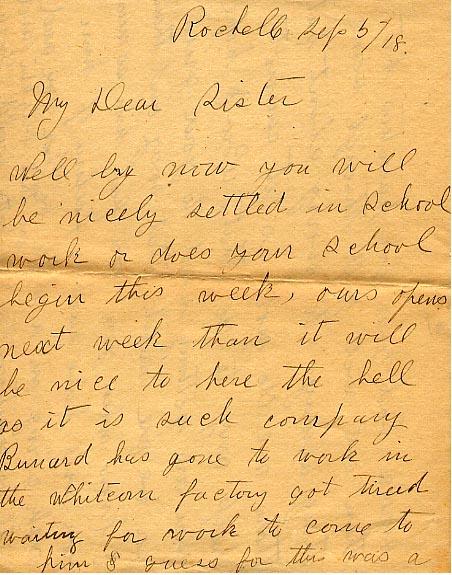 Rochelle Sep 5/18.
My Dear Sister
Well by now you will
be nicely settled in school
work or does your school
begin this week, ours opens
next week than it will
be nice to here the bell
as it is such company
Bunard has gone to work in
the Whitcom factory got tired
waiting for work to come to
him I guess for this was a